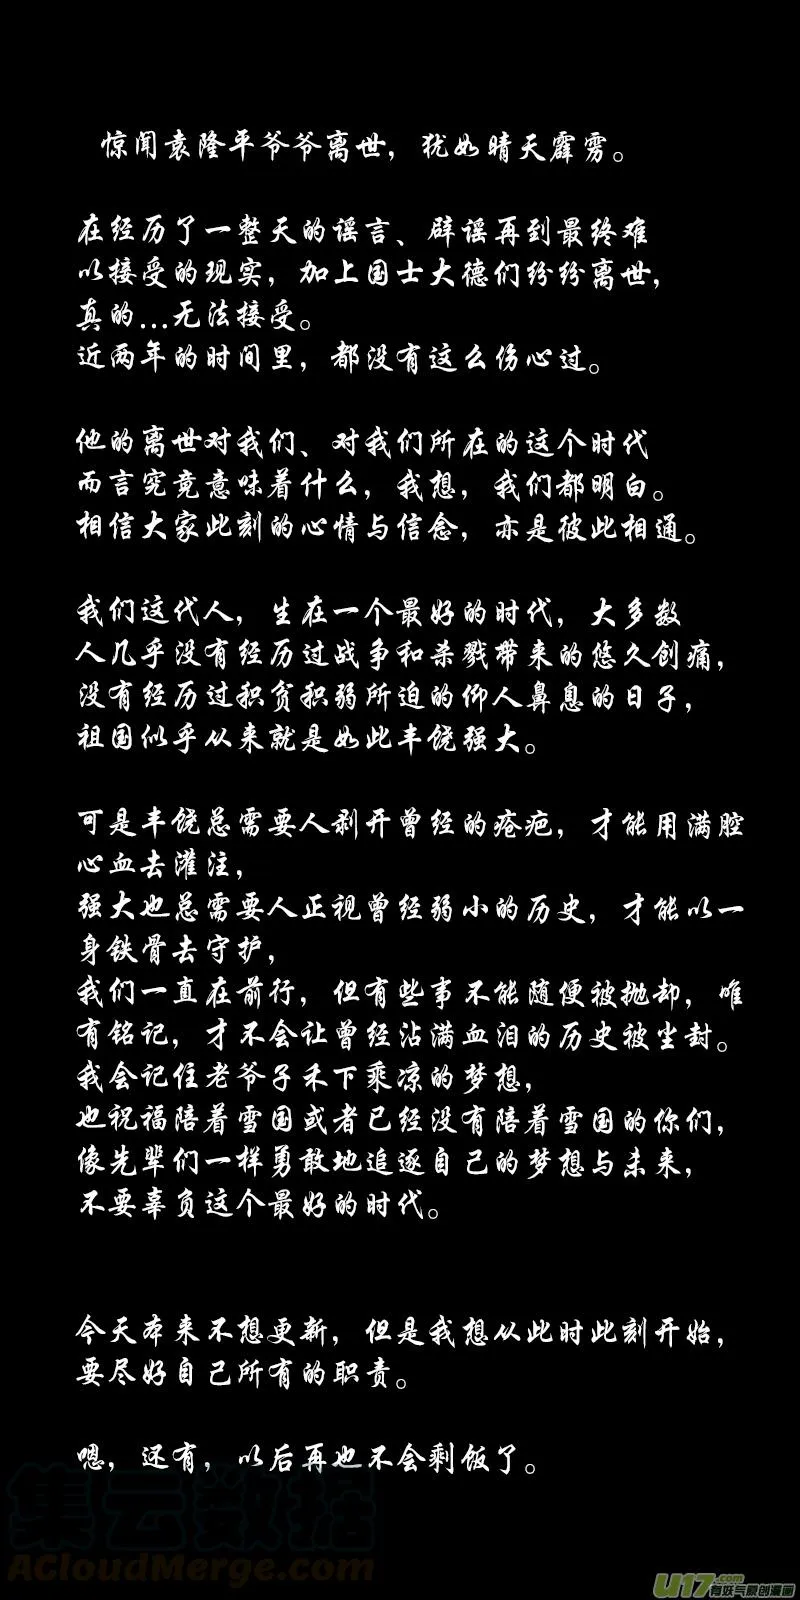 惊闻袁隆平爷爷离世，犹如晴天霹雳。
在经历了一整天的谣言、辟谣再到最终难
以接受的现实，加上国士大德们纷纷离世，
真的...无法接受。
近两年的时间里，都没有这么伤心过。
他的离世对我们、对我们所在的这个时代
而言究竟意味着什么，我想，我们都明白。
相信大家此刻的心情与信念，亦是彼此相通。
我们这代人，生在一个最好的时代，大多数
人几乎没有经历过战争和杀戮带来的悠久创痛，
没有经历过积贫积弱所迫的仰人鼻息的日子，
祖国似乎从来就是如此丰饶强大。
可是丰饶总需要人剥开曾经的疮疤，才能用满腔
心血去灌注，
强大也总需要人正视曾经弱小的历史，才能以一
身铁骨去守护，
我们一直在前行，但有些事不能随便被抛却，唯
有铭记，才不会让曾经沾满血泪的历史被尘封。
我会记住老爷子禾下乘凉的梦想，
也祝福陪着雪国或者已经没有陪着雪国的你们，
像先辈们一样勇敢地追逐自己的梦想与未来，
不要辜负这个最好的时代。
今天本来不想更新，但是我想从此时此刻开始，
要尽好自己所有的职责。
嗯，还有，以后再也不会剩饭了。
集云数据
ACloudMerge.com
U17.com
有妖气原创漫画